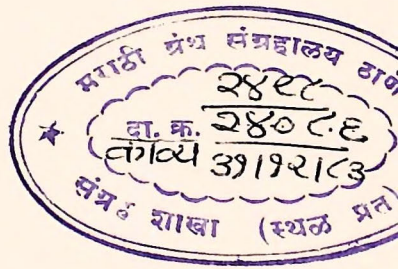 मराठी ग्रंथ संग्रहालय ठाणे
२४९८
दा. क्र. २४०८.६
३१।१२।८३
संग्रह शाखा (स्थळ प्रत)